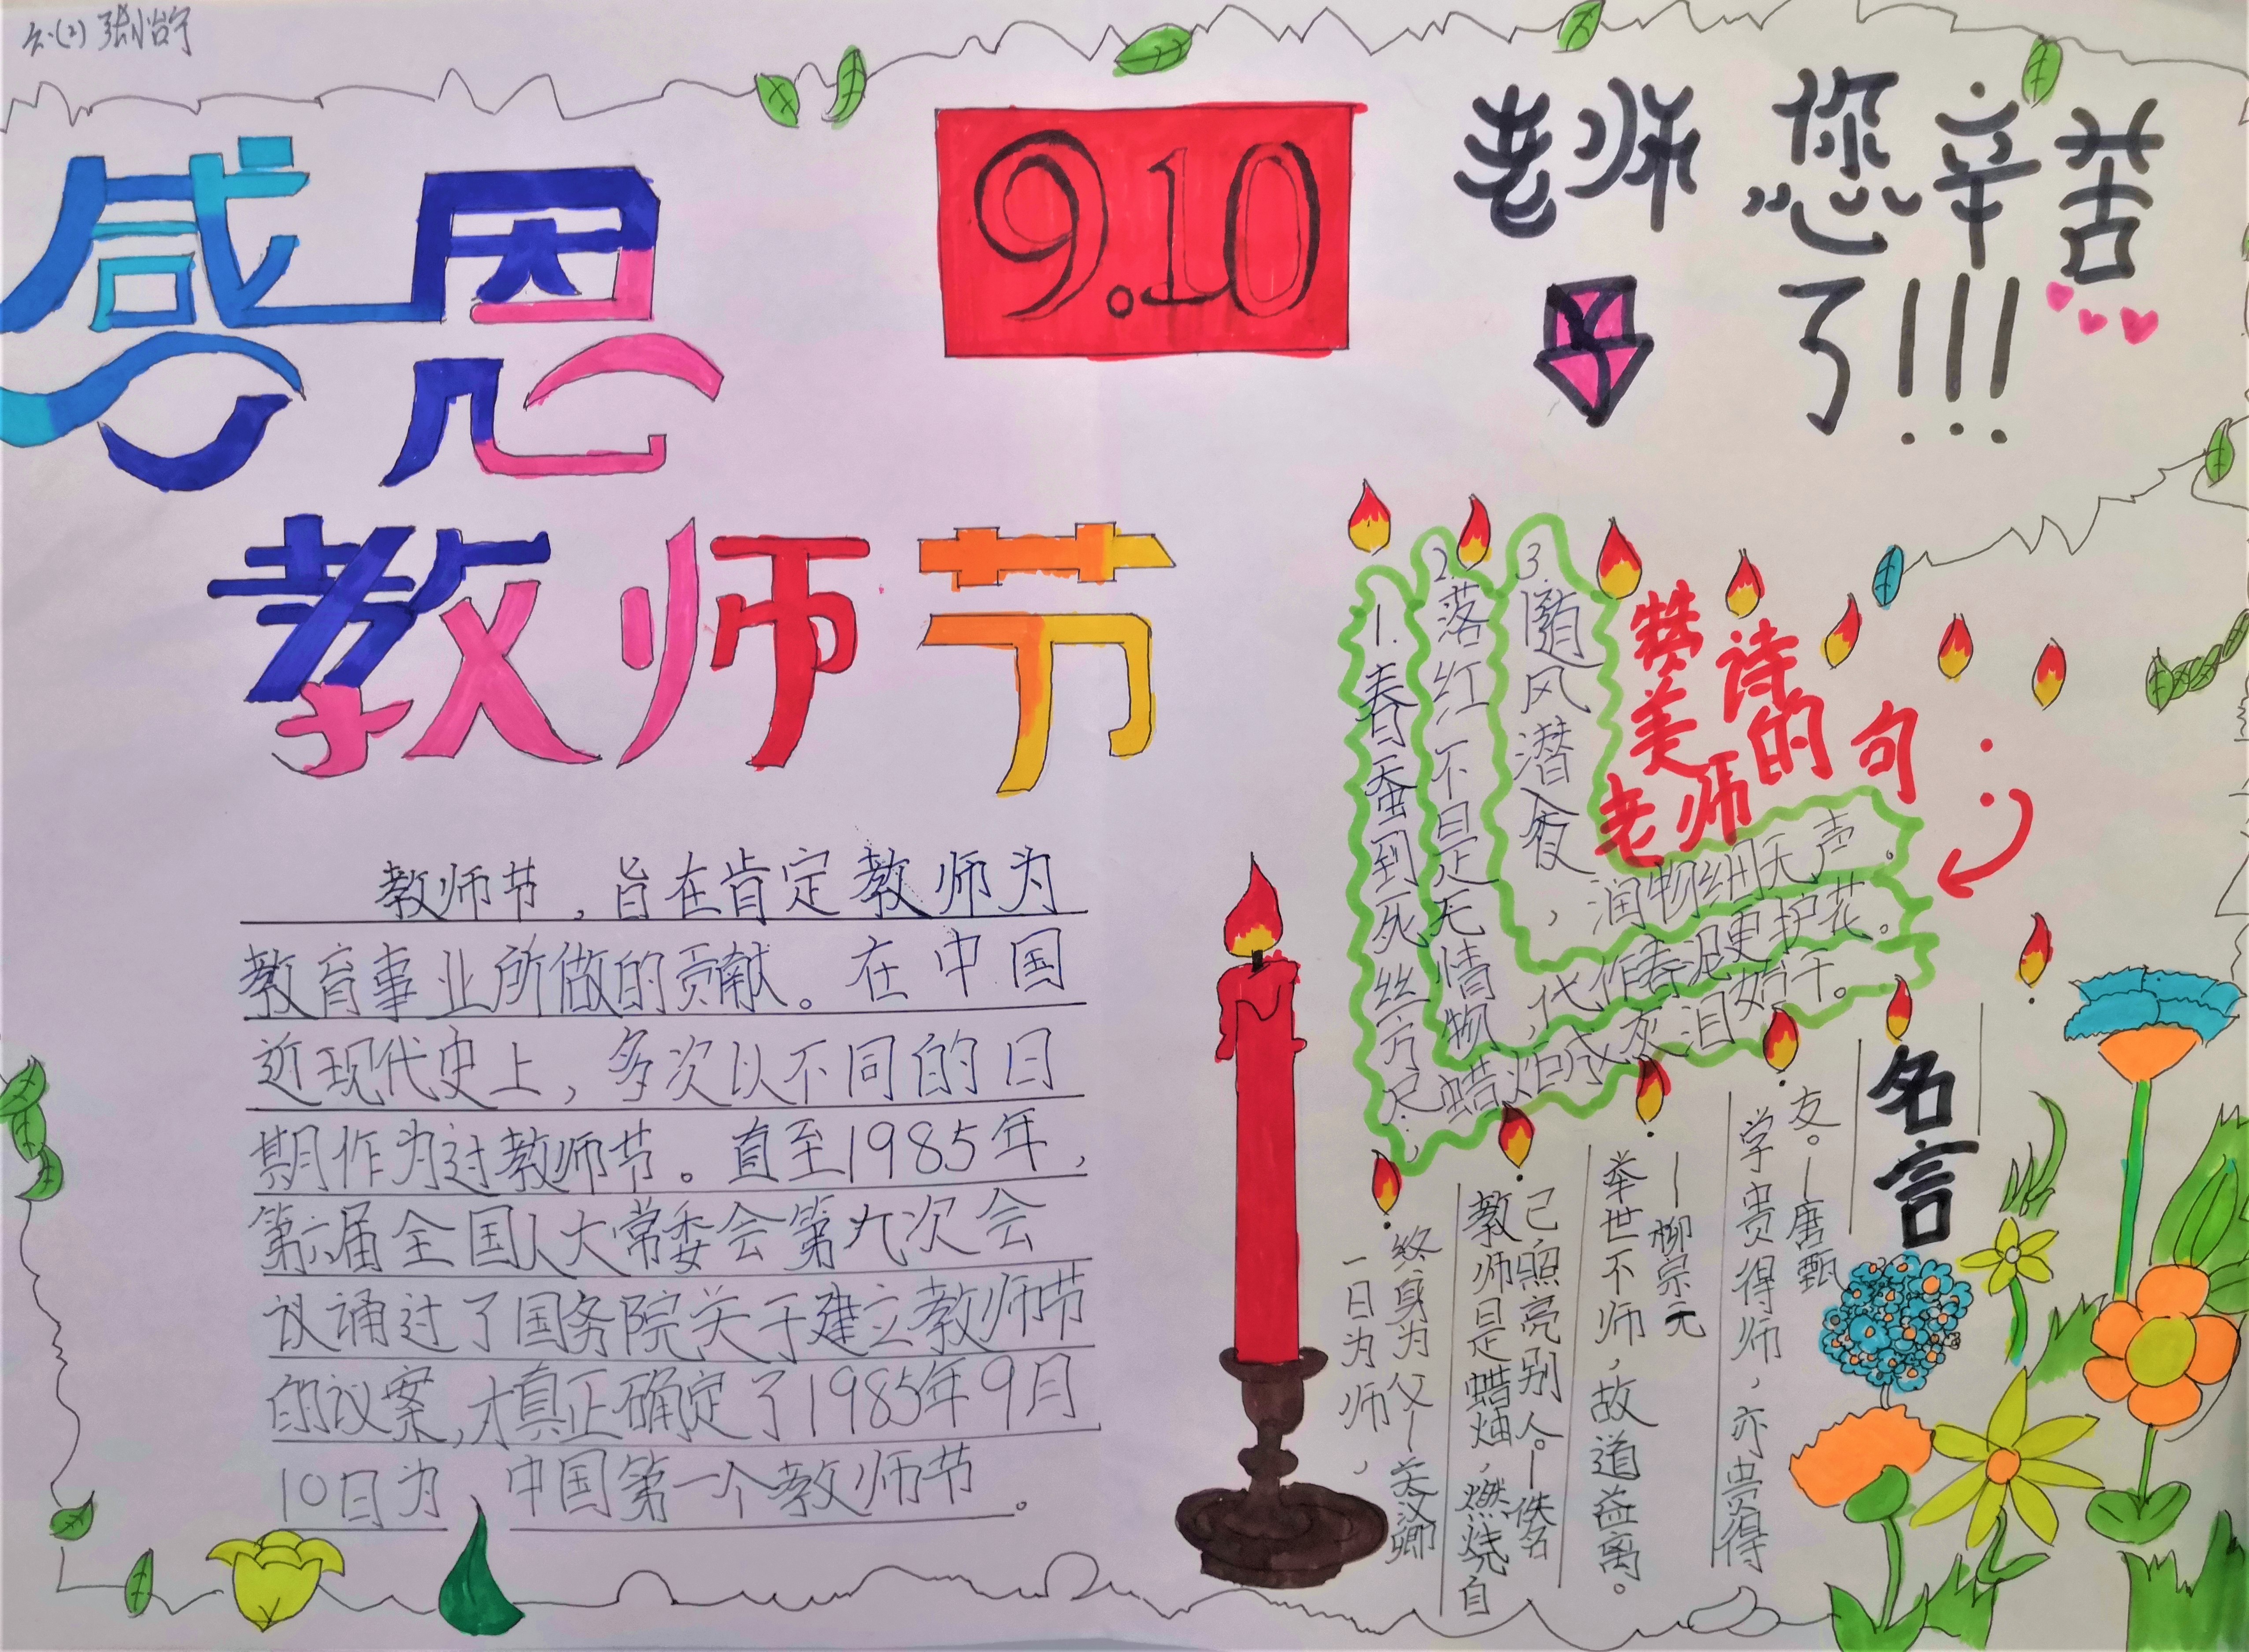 六(2) 张小台宁
感恩
教师节
9.10
老师 您辛苦
了!!!
教师节，旨在肯定教师为
教育事业所做的贡献。在中国
近现代史上，多次以不同的日
期作为过教师节。直至1985年，
第六届全国人大常委会第九次会
议诵过了国务院关于建立教师节
的议案，才真正确定了1985年9月
10日为、中国第一个教师节。
赞美老师的诗句:
1.春蚕到死丝方尽，蜡炬成灰泪始干。
2.落红不是无情物，代作春泥更护花。
3.随风潜入夜，润物细无声。
名言
学贵得师，亦贵得
友。—唐甄
举世不师，故道益离。
—柳宗元
教师是蜡烛，燃烧自
己，照亮别人。—佚名
一日为师，
终身为父—关汉卿